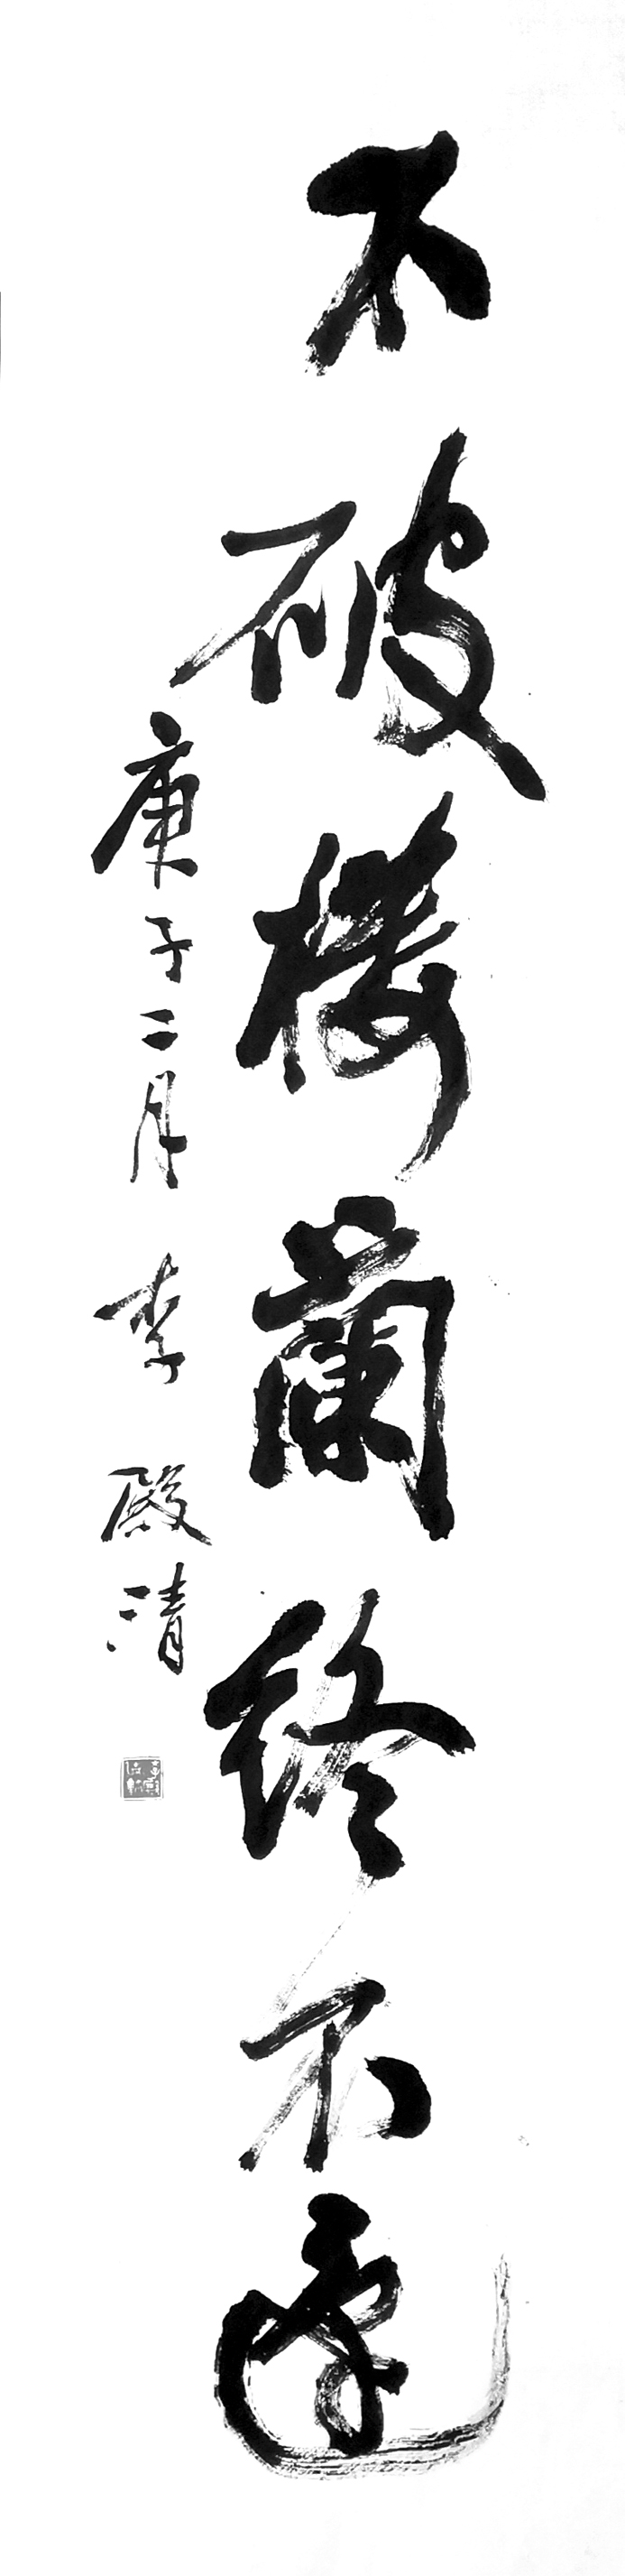 不破楼蘭终不還
庚子二月李殿清